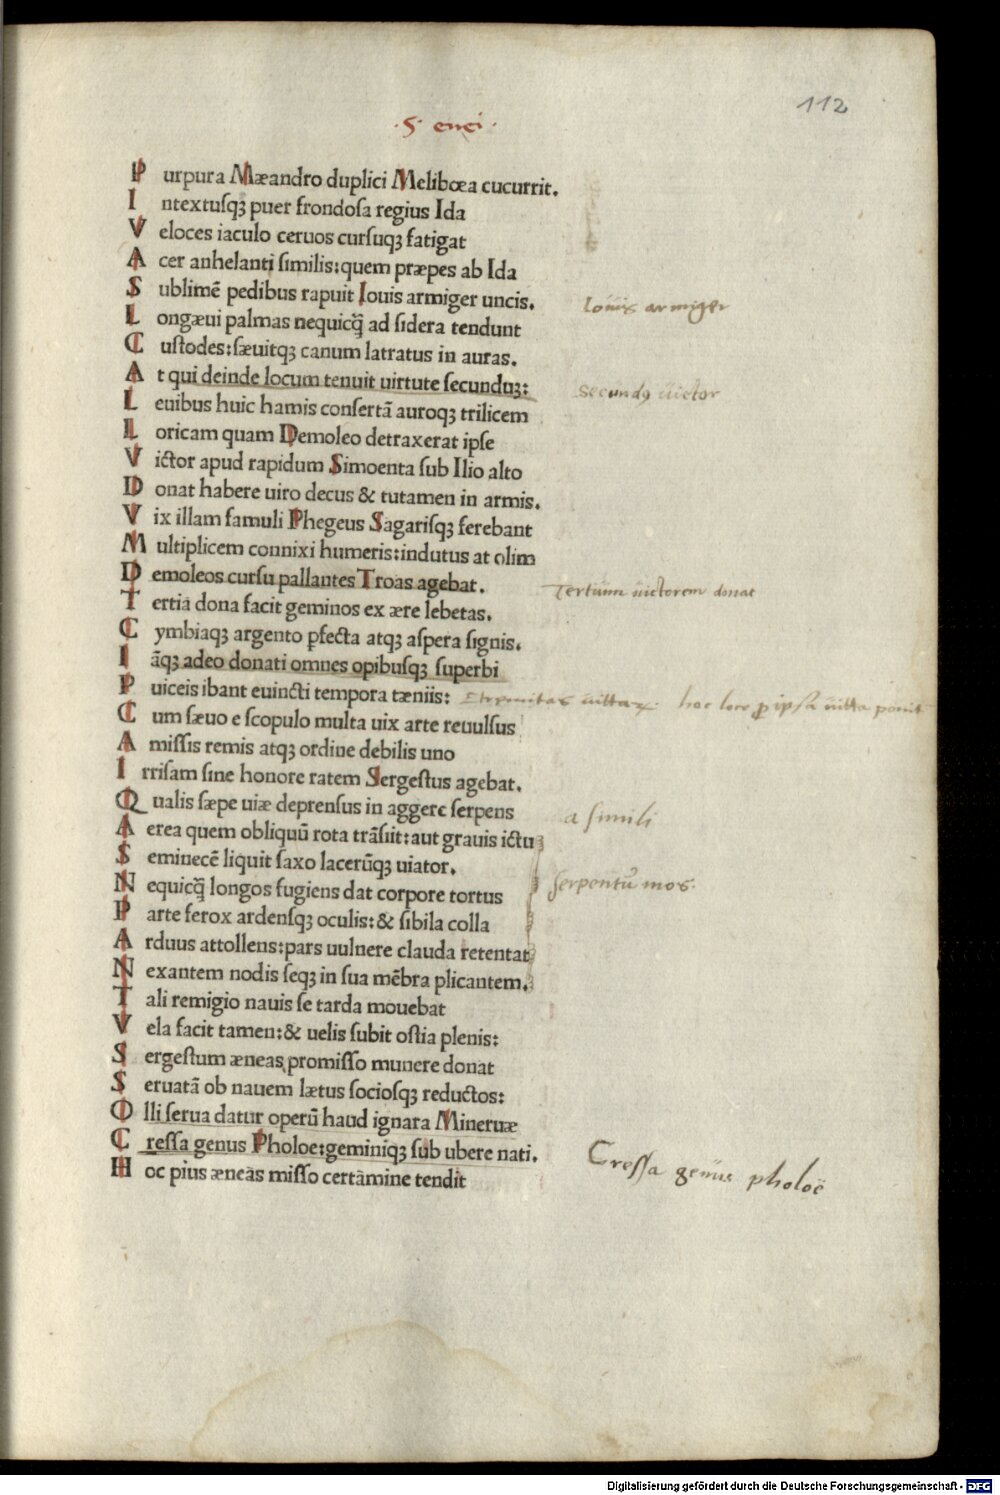 112
·5· enei·
Purpura Mæandro duplici Melibœa cucurrit.
Intextuſqꝫ puer frondoſa regius Ida
Veloces iaculo ceruos curſuqꝫ fatigat
Acer anhelanti ſimilis:quem præpes ab Ida
Sublimē pedibus rapuit Iouis armiger uncis.
Iouis armiger
Longæui palmas nequicq̃ ad ſidera tendunt
Cuſtodes:ſæuitqꝫ canum latratus in auras.
At qui deinde locum tenuit uirtute ſecunduꝫ:
Secundꝰ uictor
Leuibus huic hamis conſertā auroqꝫ trilicem
Loricam quam Demoleo detraxerat ipſe
Victor apud rapidum Simoenta ſub Ilio alto
Donat habere uiro decus & tutamen in armis.
Vix illam famuli Phegeus Sagariſqꝫ ferebant
Multiplicem connixi humeris:indutus at olim
Demoleos curſu pallantes Troas agebat.
Tertium uictorem donat
Tertia dona facit geminos ex ære lebetas.
Cymbiaqꝫ argento ꝑfecta atqꝫ aſpera ſignis.
Iāqꝫ adeo donati omnes opibuſqꝫ ſuperbi
Puiceis ibant euincti tempora tæniis:
uittaꝝ hoc loco ꝓ ipſa uitta ponit
Cum ſæuo e ſcopulo multa uix arte reuulſus
Amiſſis remis atqꝫ ordine debilis uno
Irriſam ſine honore ratem Sergeſtus agebat.
Qualis ſæpe uiæ deprenſus in aggere ſerpens
a ſimili
Aerea quem obliquū rota trāſiit:aut grauis ictu
Seminecē liquit ſaxo lacerūqꝫ uiator.
Nequicq̃ longos fugiens dat corpore tortus
ſerpentū mos·
Parte ferox ardenſqꝫ oculis:& ſibila colla
Arduus attollens:pars uulnere clauda retentat
Nexantem nodis ſeqꝫ in ſua mēbra plicantem.
Tali remigio nauis ſe tarda mouebat
Vela facit tamen:& uelis ſubit oſtia plenis:
Sergeſtum æneas promiſſo munere donat
Seruatā ob nauem lætus ſocioſqꝫ reductos:
Olli ſerua datur operū haud ignara Mineruæ
Creſſa genus Pholoe:geminiqꝫ ſub ubere nati.
Creſſa genus pholoë
Hoc pius æneas miſſo certamine tendit
Digitalisierung gefördert durch die Deutsche Forschungsgemeinschaft - DFG